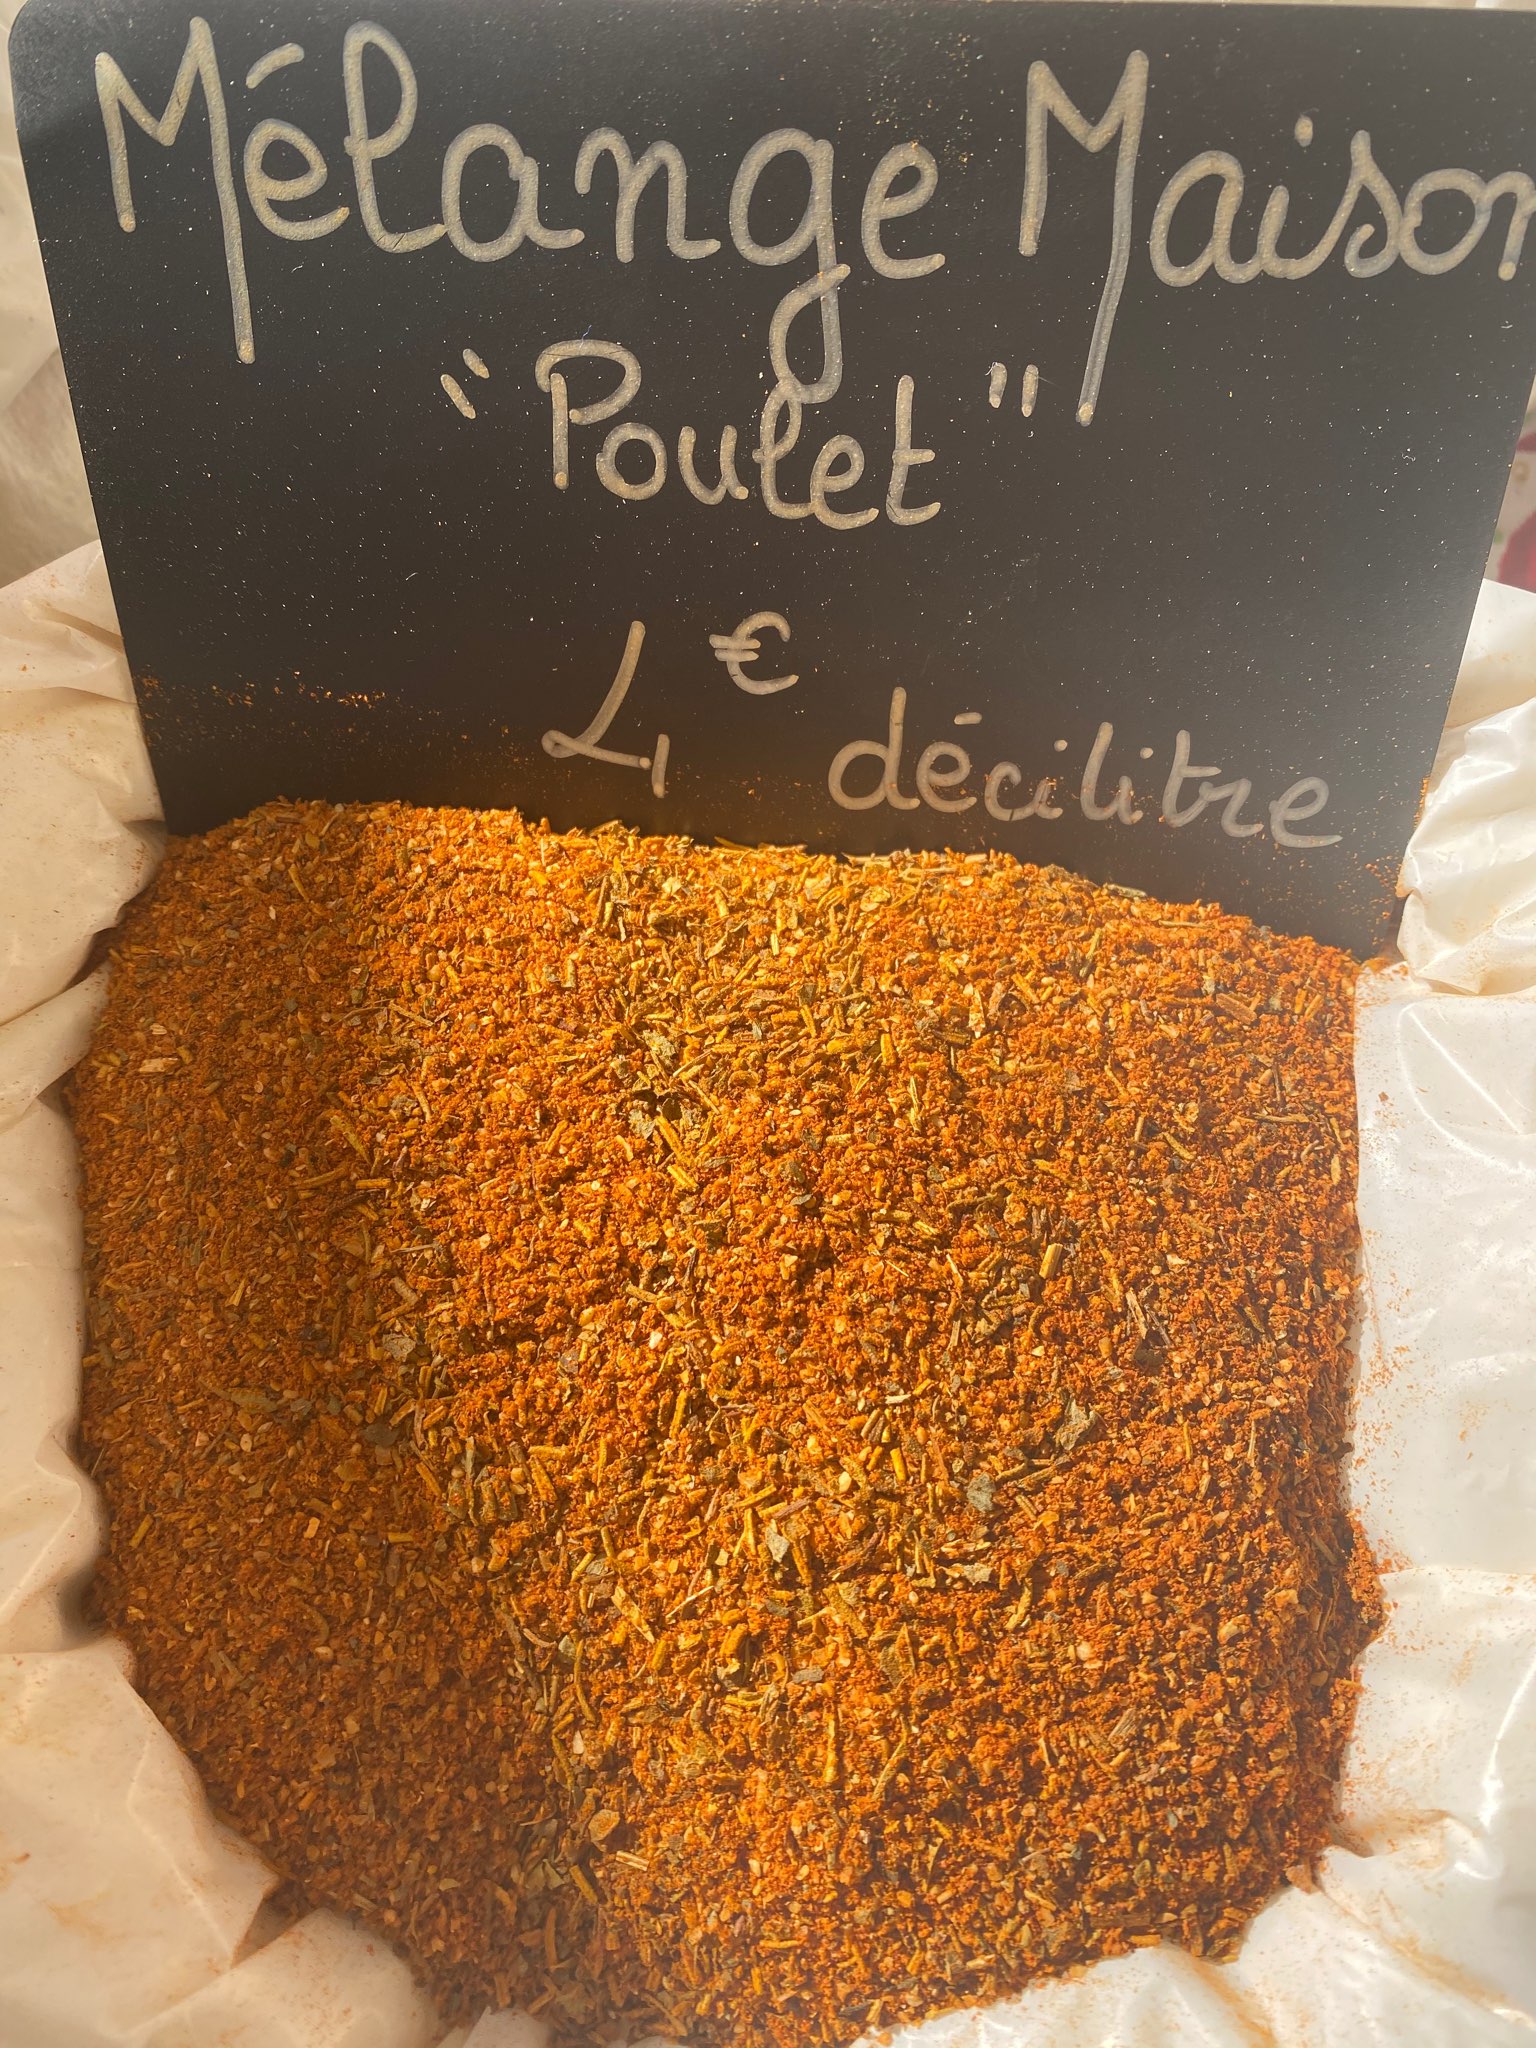 Mélange Maison
"Poulet"
4€ décilitre